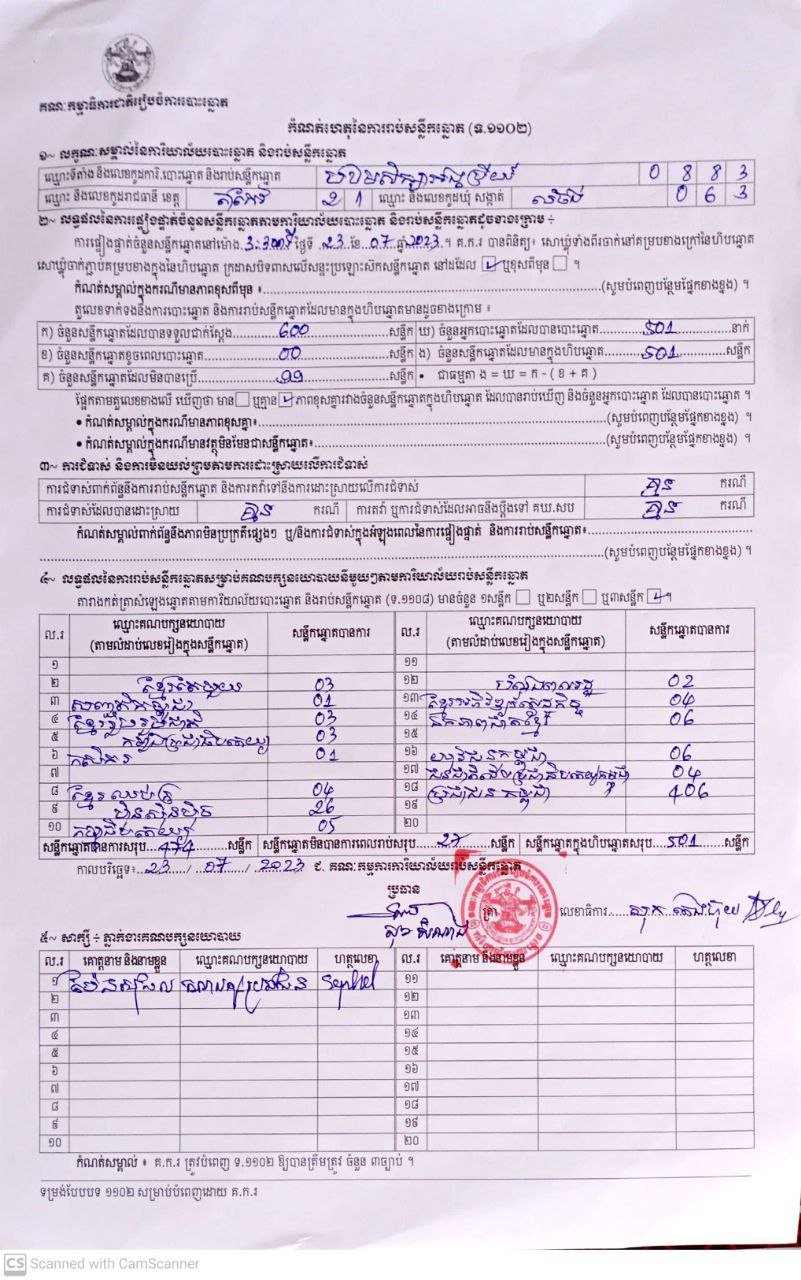 គណៈកម្មាធិការជាតិរៀបចំការបោះឆ្នោត
កំណត់ហេតុនៃការរាប់សន្លឹកឆ្នោត (ទ.១១០២)
១~ លក្ខណៈសម្គាល់នៃការិយាល័យបោះឆ្នោត និងរាប់សន្លឹកឆ្នោត
ឈ្មោះទីតាំង និងលេខកូដការិ.បោះឆ្នោត និងរាប់សន្លឹកឆ្នោត 0 8 8 3
ឈ្មោះ និងលេខកូដរាជធានី ខេត្ត តាកែវ 2 1 ឈ្មោះ និងលេខកូដឃុំ សង្កាត់ 0 6 3
២~ លទ្ធផលនៃការផ្ទៀងផ្ទាត់ចំនួនសន្លឹកឆ្នោតតាមការិយាល័យបោះឆ្នោត និងរាប់សន្លឹកឆ្នោតដូចខាងក្រោម ÷
ការផ្ទៀងផ្ទាត់ចំនួនសន្លឹកឆ្នោតនៅម៉ោង ថ្ងៃទី 23 ខែ 07 ឆ្នាំ 2023 ។ គ.ក.រ បានពិនិត្យ៖ សោឃ្នុំទាំងពីរចាក់នៅគម្របខាងក្រៅនៃហិបឆ្នោត
សោឃ្នុំចាក់ភ្ជាប់គម្របខាងក្នុងនៃហិបឆ្នោត ក្រដាសបិទពាសលើសន្ទះប្រឡោះស៊កសន្លឹកឆ្នោត នៅដដែល ឬខុសពីមុន ។
កំណត់សម្គាល់ក្នុងករណីមានភាពខុសពីមុន ៖ (សូមបំពេញបន្ថែមផ្នែកខាងខ្នង) ។
តួលេខទាក់ទងនឹងការបោះឆ្នោត និងការរាប់សន្លឹកឆ្នោតដែលមានក្នុងហិបឆ្នោតមានដូចខាងក្រោម ៖
ក) ចំនួនសន្លឹកឆ្នោតដែលបានទទួលជាក់ស្តែង 600 សន្លឹក ឃ) ចំនួនអ្នកបោះឆ្នោតដែលបានបោះឆ្នោត 501 នាក់
ខ) ចំនួនសន្លឹកឆ្នោតខូចពេលបោះឆ្នោត 00 សន្លឹក ង) ចំនួនសន្លឹកឆ្នោតដែលមានក្នុងហិបឆ្នោត 501 សន្លឹក
គ) ចំនួនសន្លឹកឆ្នោតដែលមិនបានប្រើ 99 សន្លឹក • ជាធម្មតា ង = ឃ = ក - ( ខ + គ )
ផ្អែកតាមតួលេខខាងលើ ឃើញថា មាន ឬគ្មាន ភាពខុសគ្នារវាងចំនួនសន្លឹកឆ្នោតក្នុងហិបឆ្នោត ដែលបានរាប់ឃើញ និងចំនួនអ្នកបោះឆ្នោត ដែលបានបោះឆ្នោត ។
• កំណត់សម្គាល់ក្នុងករណីមានភាពខុសគ្នា៖ (សូមបំពេញបន្ថែមផ្នែកខាងខ្នង) ។
• កំណត់សម្គាល់ក្នុងករណីមានវត្ថុមិនមែនជាសន្លឹកឆ្នោត៖ (សូមបំពេញបន្ថែមផ្នែកខាងខ្នង) ។
៣~ ការជំទាស់ និងការមិនយល់ព្រមតាមការដោះស្រាយលើការជំទាស់
ការជំទាស់ពាក់ព័ន្ធនឹងការរាប់សន្លឹកឆ្នោត និងការតវ៉ាទៅនឹងការដោះស្រាយលើការជំទាស់ គ្មាន ករណី
ការជំទាស់ដែលបានដោះស្រាយ គ្មាន ករណី ការតវ៉ា ឬការជំទាស់ដែលអាចនឹងប្តឹងទៅ គឃ.សប គ្មាន ករណី
កំណត់សម្គាល់ពាក់ព័ន្ធនឹងភាពមិនប្រក្រតីផ្សេងៗ ឬ/និងការជំទាស់ក្នុងអំឡុងពេលនៃការផ្ទៀងផ្ទាត់ និងការរាប់សន្លឹកឆ្នោត៖
(សូមបំពេញបន្ថែមផ្នែកខាងខ្នង) ។
៤~ លទ្ធផលនៃការរាប់សន្លឹកឆ្នោតសម្រាប់គណបក្សនយោបាយនីមួយៗតាមការិយាល័យរាប់សន្លឹកឆ្នោត
តារាងកត់ត្រាសំឡេងឆ្នោតតាមការិយាល័យបោះឆ្នោត និងរាប់សន្លឹកឆ្នោត (ទ.១១០៨) មានចំនួន ១សន្លឹក ឬ២សន្លឹក ឬ៣សន្លឹក ។
ល.រ ឈ្មោះគណបក្សនយោបាយ (តាមលំដាប់លេខរៀងក្នុងសន្លឹកឆ្នោត) សន្លឹកឆ្នោតបានការ ល.រ ឈ្មោះគណបក្សនយោបាយ (តាមលំដាប់លេខរៀងក្នុងសន្លឹកឆ្នោត) សន្លឹកឆ្នោតបានការ
១ ១១
២ ខ្មែរតែមួយ 03 ១២ 02
៣ 01 ១៣ ខ្មែរអភិវឌ្ឍន៍សេដ្ឋកិច្ច 04
៤ ខ្មែររួបរួមជាតិ 03 ១៤ ឯកភាពជាតិខ្មែរ 06
៥ កម្ពុជាប្រជាធិបតេយ្យ 03 ១៥
៦ កសិករ 01 ១៦ យុវជនកម្ពុជា 06
៧ ១៧ ជនជាតិដើមប្រជាធិបតេយ្យកម្ពុជា 04
៨ ខ្មែរឈប់ក្រ 04 ១៨ ប្រជាជនកម្ពុជា 406
៩ ហ្វ៊ុនស៊ិនប៉ិច 26 ១៩
១០ 05 ២០
សន្លឹកឆ្នោតបានការសរុប 474 សន្លឹក សន្លឹកឆ្នោតមិនបានការពេលរាប់សរុប 27 សន្លឹក សន្លឹកឆ្នោតក្នុងហិបឆ្នោតសរុប 501 សន្លឹក
កាលបរិច្ឆេទ៖ 23 / 07 / 2023 ជ. គណៈកម្មការការិយាល័យរាប់សន្លឹកឆ្នោត
ប្រធាន
ត្រា លេខាធិការ
៥~ សាក្សី ÷ ភ្នាក់ងារគណបក្សនយោបាយ
ល.រ គោត្តនាម និងនាមខ្លួន ឈ្មោះគណបក្សនយោបាយ ហត្ថលេខា ល.រ គោត្តនាម និងនាមខ្លួន ឈ្មោះគណបក្សនយោបាយ ហត្ថលេខា
១ ១១
២ ១២
៣ ១៣
៤ ១៤
៥ ១៥
៦ ១៦
៧ ១៧
៨ ១៨
៩ ១៩
១០ ២០
កំណត់សម្គាល់ ៖ គ.ក.រ ត្រូវបំពេញ ទ.១១០២ ឱ្យបានត្រឹមត្រូវ ចំនួន ៣ច្បាប់ ។
ទម្រង់បែបបទ ១១០២ សម្រាប់បំពេញដោយ គ.ក.រ
CS Scanned with CamScanner